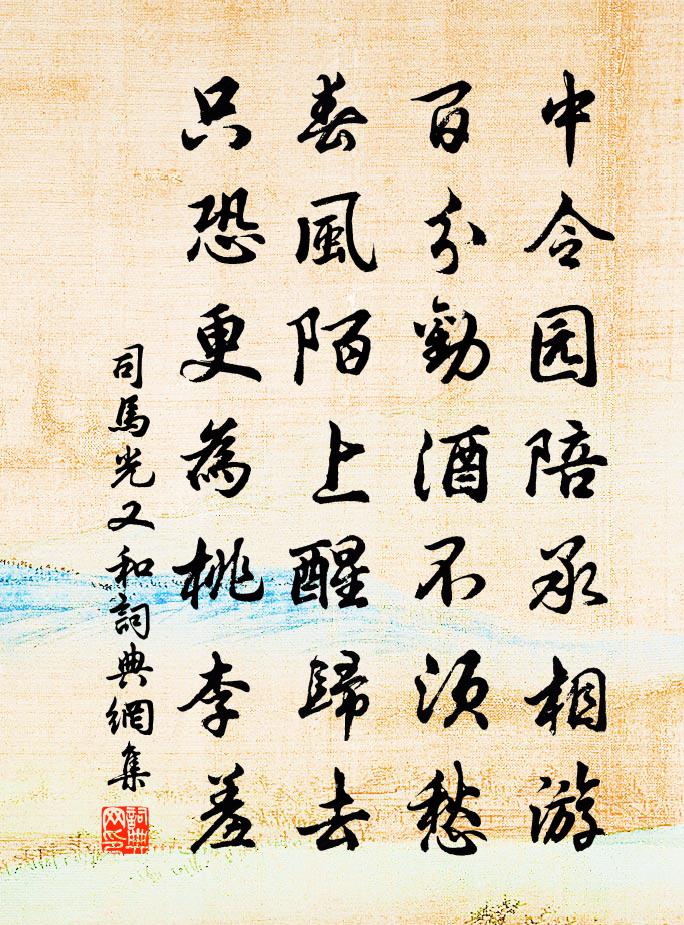 中令园陪承相游
百分勸酒不須愁
春風陌上醒歸去
只恐更為桃李羞
司馬光又和詞典網集
詞典網印